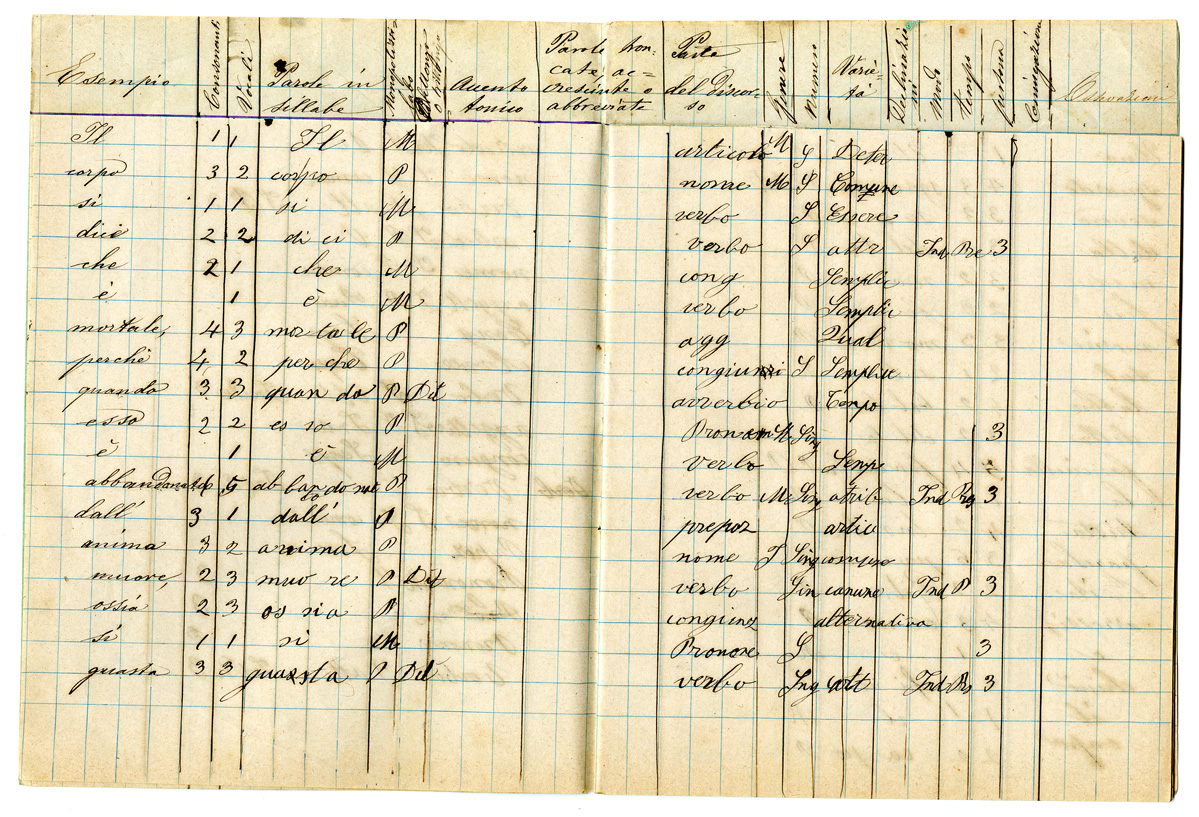 Esempio Consonanti Vocali Parole in sillabe Monosillabo Dittongo o trittongo Accento tonico Parole troncate, accresciute o abbreviate Parte del Discorso Genere Numero Varietà Declinazione Modo Tempo Persona Coniugazione Osservazioni
Il 1 1 Il M articolo M S Deter
corpo 3 2 corpo P nome M S Comune
si 1 1 si M verbo S Essere
dice 2 2 di ci P verbo S attr Ind Pre 3
che 2 1 che M cong Semplic
è 1 è M verbo Semplic
mortale, 4 3 mor ta le P agg Qual
perchè 4 2 per che P congiunzi S Semplice
quando 3 3 quan do P Dit avverbio Tempo
esso 2 2 es so P Pronom M Sing 3
è 1 è M verbo Semp
abbandonato 5 P verbo M Sing atrib Ind Prs 3
dall' 3 1 dall' P prepoz artic
anima 3 2 anima P nome Sing comune
muore, 2 3 muo re P Dit verbo Sin comune Ind P 3
ossia 2 3 os sia P congiunz alternativa
si 1 1 si M Pronome S 3
guasta 3 3 guasta P Dit verbo Ing att Ind Prs 3